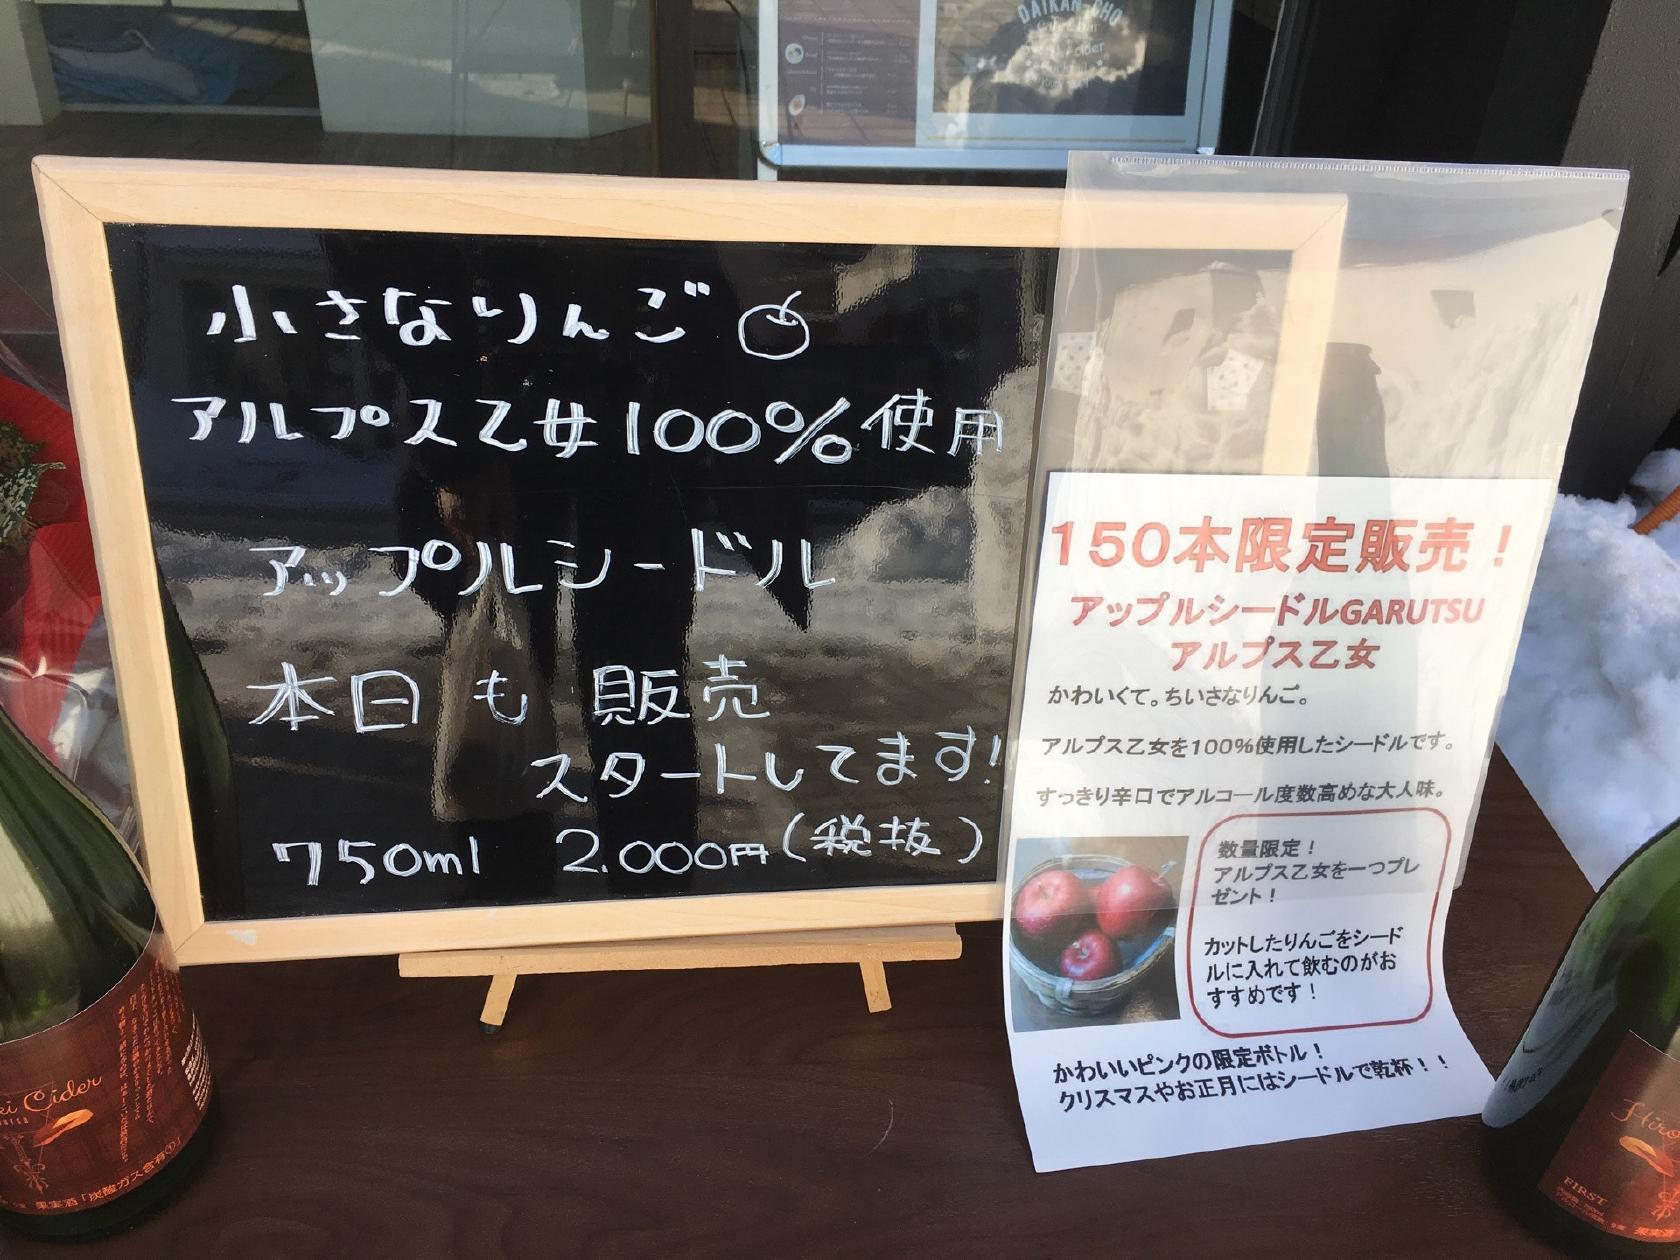 DAIKAN CHO
小さなりんご
アルプス乙女100%使用
アップルシードル
本日も販売
スタートしてます!
750ml 2.000円(税抜)
150本限定販売！
アップルシードルGARUTSU
アルプス乙女
かわいくて。ちいさなりんご。
アルプス乙女を100%使用したシードルです。
すっきり辛口でアルコール度数高めな大人味。
数量限定！
アルプス乙女を一つプレ
ゼント！
カットしたりんごをシード
ルに入れて飲むのがお
すすめです！
かわいいピンクの限定ボトル！
クリスマスやお正月にはシードルで乾杯！！
Cider
果実酒「炭酸ガス含有①」
FIRST